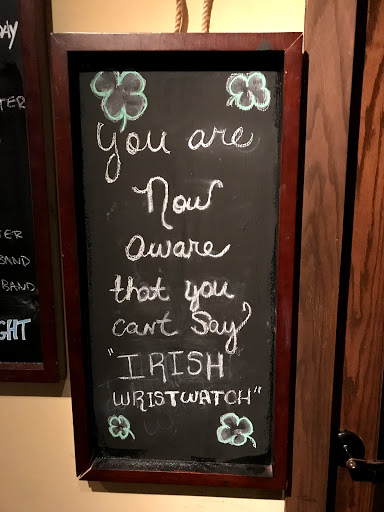 AY
TER
TER
BAND
BAND
GHT
You are
Now
aware
that you
can't Say
"IRISH
WRISTWATCH"